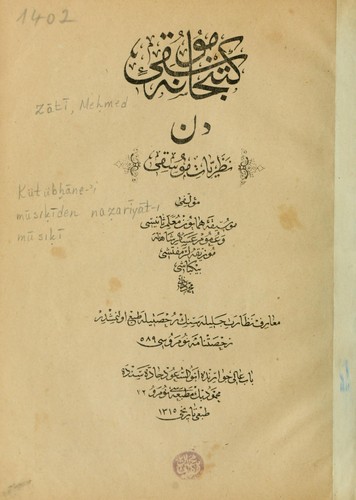 1402
كتبخانهٔ موسقى
دن
Zâtî, Mehmed
نظريات موسقى
Kütübhâne-'i
mûsıkîden nazarîyât-ı
mûsıkî
مؤلفى
موسيقهٔ همايون معلم ثانيسى
و عموم عساكر شاهانه
موزيقه لر مفتشى
بيكباشى
محمد ذاتى
معارف نظارت جليله سنك رخصتيله طبع اولنمشدر
رخصتنامه نومروسى ٥٨٩
باب عالى جوارنده ابوالسعود جاده سنده
محمود بك مطبعه سى نومرو ٧٢
طبعى تاريخى ١٣١٥